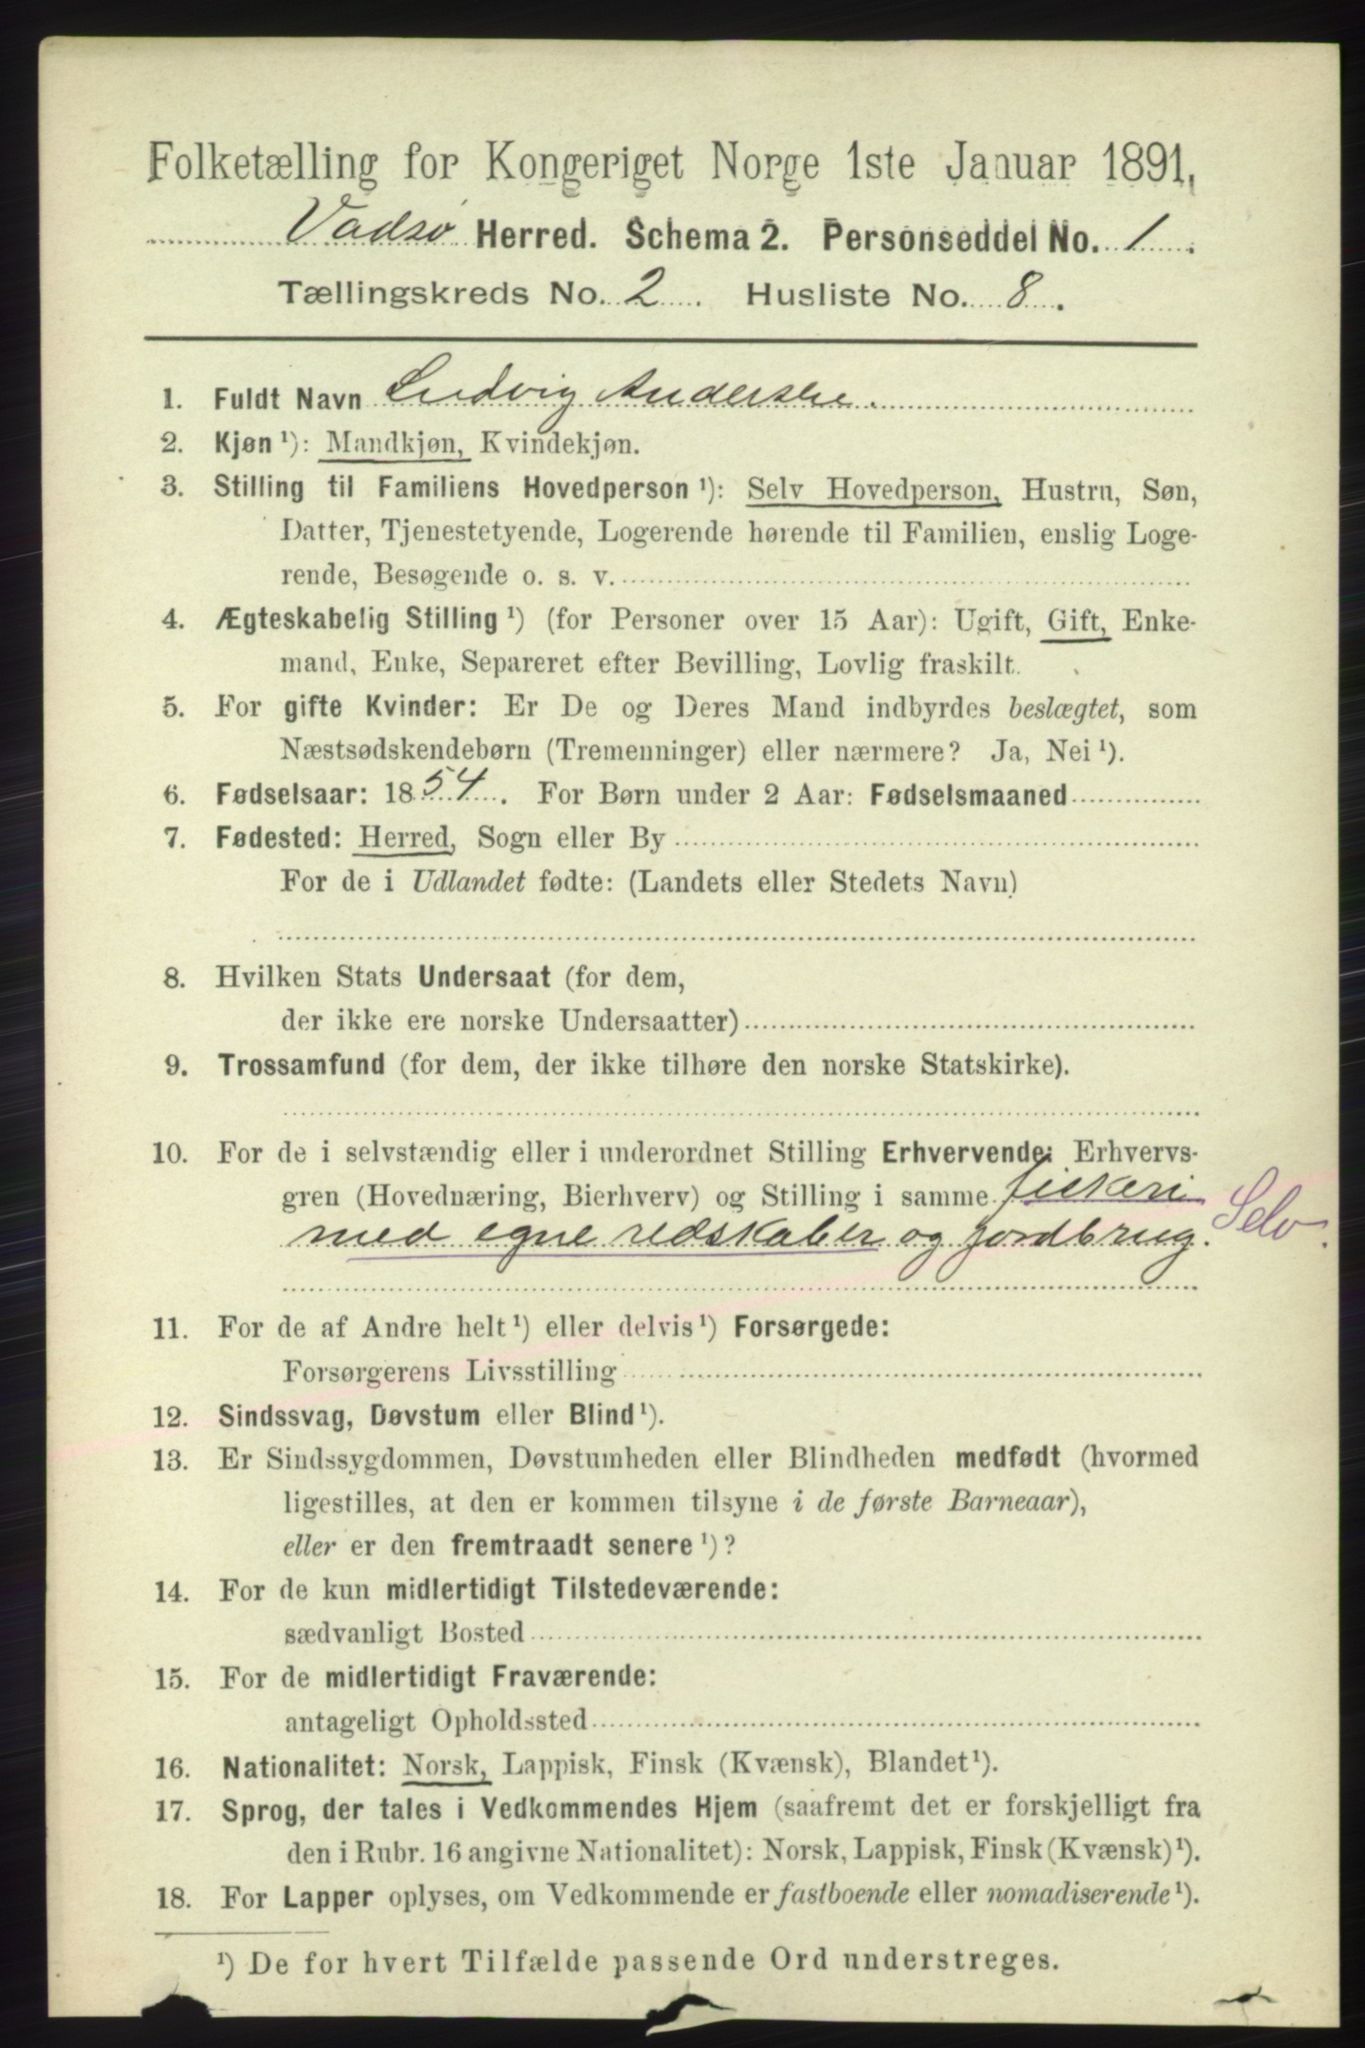 Folketælling for Kongeriget Norge 1ste Januar 1891.
Vadsø Herred. Schema 2. Personseddel No. 1.
Tællingskreds No. 2. Husliste No. 8.
1. Fuldt Navn Ludvig Andersen.
2. Kjøn ¹): Mandkjøn, Kvindekjøn.
3. Stilling til Familiens Hovedperson ¹): Selv Hovedperson, Hustru, Søn,
Datter, Tjenestetyende, Logerende hørende til Familien, enslig Loge-
rende, Besøgende o. s. v.
4. Ægteskabelig Stilling ¹) (for Personer over 15 Aar): Ugift, Gift, Enke-
mand, Enke, Separeret efter Bevilling, Lovlig fraskilt.
5. For gifte Kvinder: Er De og Deres Mand indbyrdes beslægtet, som
Næstsødskendebørn (Tremenninger) eller nærmere? Ja, Nei ¹).
6. Fødselsaar: 1854. For Børn under 2 Aar: Fødselsmaaned
7. Fødested: Herred, Sogn eller By
For de i Udlandet fødte: (Landets eller Stedets Navn)
8. Hvilken Stats Undersaat (for dem,
der ikke ere norske Undersaatter)
9. Trossamfund (for dem, der ikke tilhøre den norske Statskirke).
10. For de i selvstændig eller i underordnet Stilling Erhvervende: Erhvervs-
gren (Hovednæring, Bierhverv) og Stilling i samme fiskeri
med egne redskaber og jordbrug. Selv.
11. For de af Andre helt ¹) eller delvis ¹) Forsørgede:
Forsørgerens Livsstilling
12. Sindssvag, Døvstum eller Blind ¹).
13. Er Sindssygdommen, Døvstumheden eller Blindheden medfødt (hvormed
ligestilles, at den er kommen tilsyne i de første Barneaar),
eller er den fremtraadt senere ¹)?
14. For de kun midlertidigt Tilstedeværende:
sædvanligt Bosted
15. For de midlertidigt Fraværende:
antageligt Opholdssted
16. Nationalitet: Norsk, Lappisk, Finsk (Kvænsk), Blandet ¹).
17. Sprog, der tales i Vedkommendes Hjem (saafremt det er forskjelligt fra
den i Rubr. 16 angivne Nationalitet): Norsk, Lappisk, Finsk (Kvænsk) ¹).
18. For Lapper oplyses, om Vedkommende er fastboende eller nomadiserende ¹).
¹) De for hvert Tilfælde passende Ord understreges.